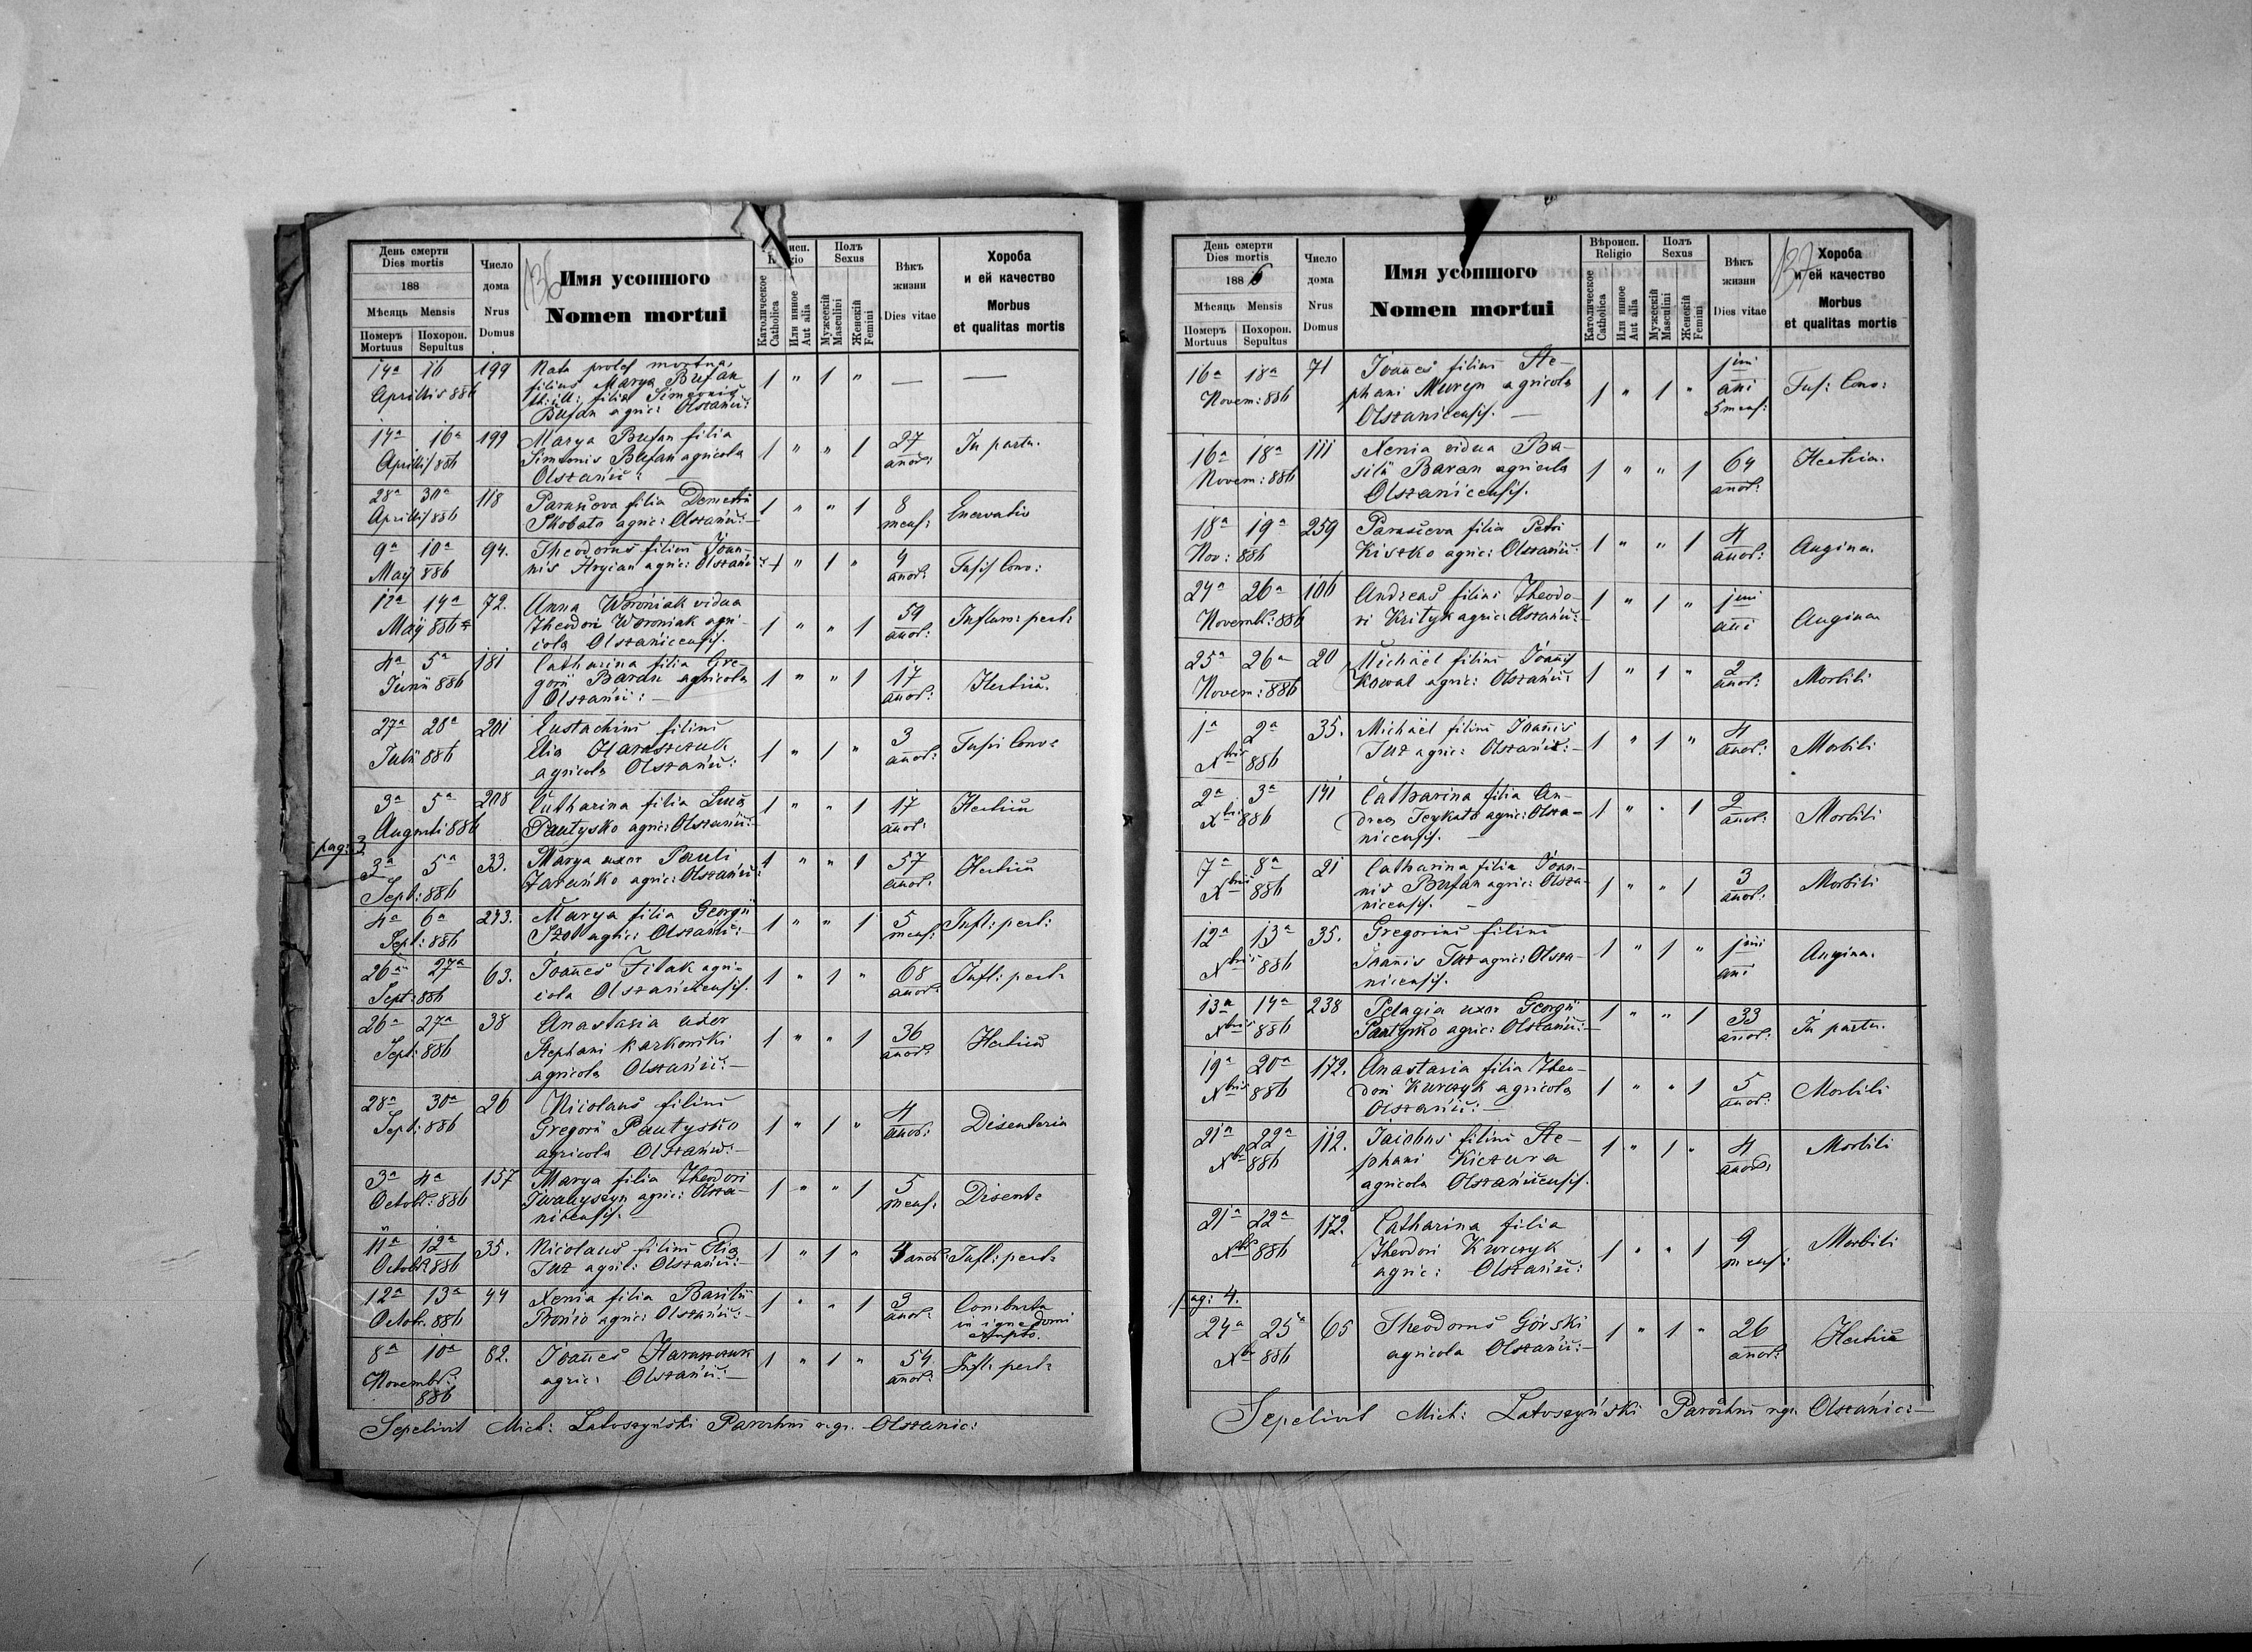 136
День смерти
Dies mortis
188
Мѣсяць Mensis
Померъ
Mortuus
Похорон.
Sepultus
Число
дома
Nrus
Domus
Имя усопшого
Nomen mortui
исп.
Католическое
Catholica
Или инное
Aut alia
Полъ
Sexus
Мужескій
Masculini
Женскій
Femini
Вѣкъ
жизни
Dies vitae
Хороба
и ей качество
Morbus
et qualitas mortis
14a 16 199 Nata proles mortua,
Aprillis 886 filius Marya Bufan 1 " 1 " — —
filia Simeonis
Bufan agric: Olszanic:
14a 16a 199 Marya Bufan filia 27 In partu.
Aprillis 886 Simeonis Bufan agricola 1 " " 1 anor:
Olszanic: —
28a 30a 118 Parasceva filia Demetrii 8 Enervatio
Aprillis 886 Skobato agric: Olszanic: — 1 " " 1 mens:
9a 10a 94. Theodorus filius Joan- 4
May 886 nis Hrycan agric: Olszanic: 1 " 1 " anor: Fusis Conv:
12a 14a 72. Anna Woroniak vidua 59
May 886 Theodori Woroniak agri- 1 " " 1 anor: Inflam: pect:
cola Olszanicensis.
4a 5a 181 Catharina filia Gre- 17
Junii 886 gorii Baran agricola 1 " " 1 anor: Hectica.
Olszanic: —
27a 28a 201 Eustachius filius 3
Julii 886 Elia Haraszczuk 1 " 1 " anor: Fusis Conv:
agricola Olszanic:
3a 5a 208 Catharina filia Luca 1 " " 1 17 Hectica
Augusti 886 Pautysko agric: Olszanic: anor:
pag: 3.
3a 5a 33. Marya uxor Pauli 1 " " 1 57 Hectica
Sept: 886 agric: Olszanic: anor:
4a 6a 243. Marya filia Georgii 1 " " 1 5 Infl: pect:
Sept: 886 agric: Olszanic: — mens:
26a 27a 63. Joannes Filak agri- 1 " 1 " 68 Infl: pect:
Sept: 886 cola Olszanicensis. anor:
26a 27a 38 Anastasia uxor 36
Sept: 886 Stephani Karkowski 1 " " 1 anor: Hectica
agricola Olszanic: —
28a 30a 26 Nicolaus filius 4
Sept: 886 Gregorii Pautysko 1 " 1 " anor: Disenteria
agricola Olszanic: —
3a 4a 157 Marya filia Theodori 5
Octob: 886 Iwanyszyn agric: Olsza- 1 " " 1 mens: Disent:
nicensis. —
11a 12a 35. Nicolaus filius Elia 1 " 1 " 4 anor: Infl: pect:
Octob: 886 Tuz agric: Olszanic: —
12a 13a 44 Xenia filia Basilii 1 " " 1 3 Combusta
Octob: 886 agric: Olszanic: — anor: in igne domi
8a 10a 82. Joannes Haraszczuk 1 " 1 " 54 Infl: pect:
Novemb: agric: Olszanic: — anor:
886
Sepelivit Mich: Latoszyński Parochus r. gr. Olszanic:
137
День смерти
Dies mortis
1886
Мѣсяць Mensis
Померъ
Mortuus
Похорон.
Sepultus
Число
дома
Nrus
Domus
Имя усопшого
Nomen mortui
Вѣроисп.
Religio
Католическое
Catholica
Или инное
Aut alia
Полъ
Sexus
Мужескій
Masculini
Женскій
Femini
Вѣкъ
жизни
Dies vitae
Хороба
и ей качество
Morbus
et qualitas mortis
16a 18a 71 Joannes filius Ste- 1ni
Novem: 886 phani Muryn agricola 1 " 1 " ani Fus: Conv:
Olszanicensis. — 5 mens:
16a 18a 111 Xenia vidua Ba- 64 Hectica.
Novem: 886 silii Baran agricola 1 " " 1 anor:
Olszanicensis.
18a 19a 259 Parasceva filia Petri 4
Nov: 886 Kiszko agric: Olszanic: 1 " " 1 anor: Angina.
24a 26a 106 Andreas filius Theodo- 1 " 1 " 1ni
Novemb: 886 ri Krityk agric: Olszanic: ani Angina
25a 26a 20 Michaël filius Joannis 1 " 1 " 2
Novem: 886 Kowal agric: Olszanic: anor: Morbili
1a 2a 35. Michaël filius Joannis 4
Xbris 886 Tuz agric: Olszanic: — 1 " 1 " anor: Morbili
2a 3a 141 Catharina filia An- 2
Xbris 886 drea agric: Olsza- 1 " " 1 anor: Morbili
nicensis. —
7a 8a 21 Catharina filia Joan- 3
Xbris 886 nis Bufan agric: Olsza- 1 " " 1 anor: Morbili
nicensis. —
12a 13a 35. Gregorius filius 1ni
Xbris 886 Joannis Tuz agric: Olsza- 1 " 1 " ani Angina.
nicensis.
13a 14a 238 Pelagia uxor Georgii 33
Xbris 886 Pautysko agric: Olszanic: — 1 " " 1 anor: In partu.
19a 20a 172. Anastasia filia Theo- 5
Xbris 886 dori Kurczyk agricola 1 " " 1 anor: Morbili
Olszanic: —
21a 22a 112. Jacobus filius Ste- 4
Xbris 886 phani Kiczura 1 " 1 " anor: Morbili
agricola Olszanicensis.
21a 22a 172. Catharina filia 9
Xbris 886 Theodori Kurczyk 1 " " 1 mens: Morbili
agric: Olszanic:
pag: 4.
24a 25a 65 Theodorus Górski 1 " 1 " 26
Xbr 886 agricola Olszanic: — anor: Hectica
Sepelivit Mich: Latoszyński Parochus r. gr. Olszanic: —